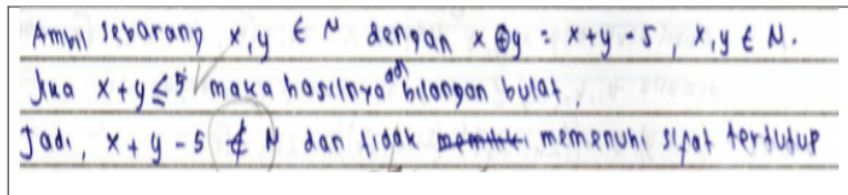 Ambil sebarang x, y ∈ N dengan x ⊕ y = x + y - 5, x, y ∈ N.
Jika x + y ≤ 5 maka hasilnya adl bilangan bulat,
Jadi, x + y - 5 ∉ N dan tidak memiliki memenuhi sifat tertutup